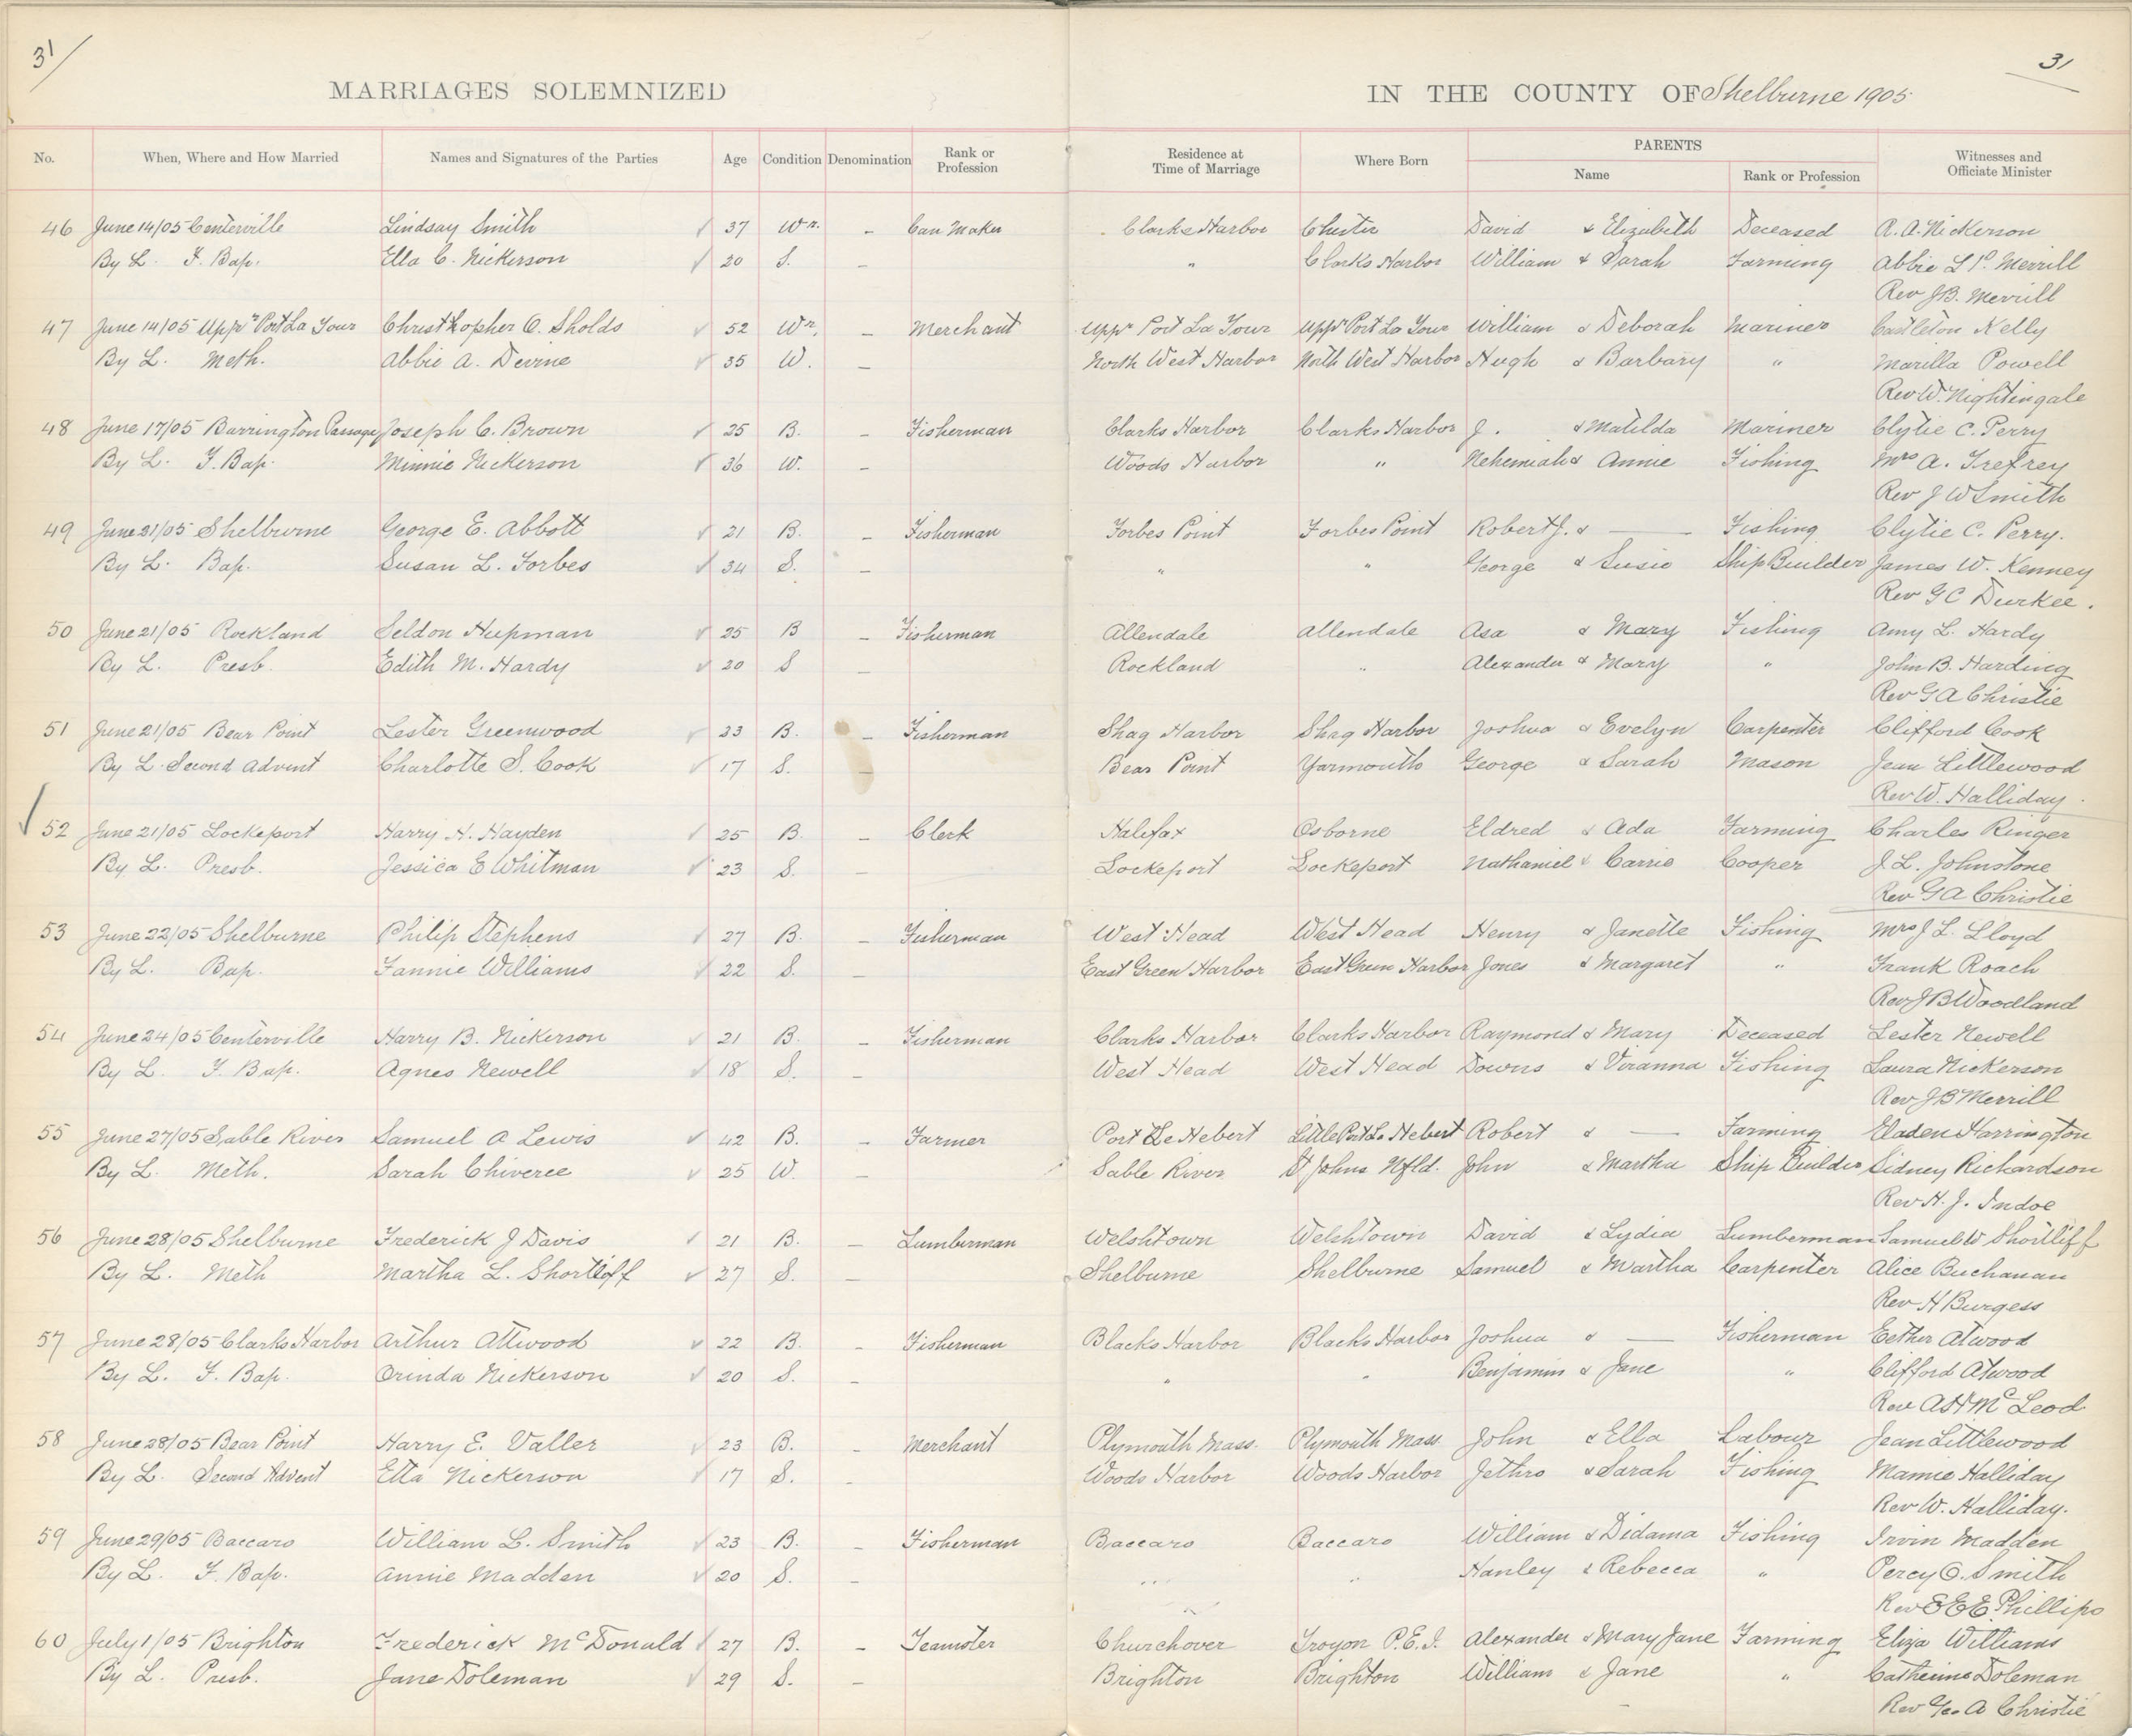 31 31
MARRIAGES SOLEMNIZED IN THE COUNTY OF Shelburne 1905
No. When, Where and How Married Names and Signatures of the Parties Age Condition Denomination Rank or Profession Residence at Time of Marriage Where Born PARENTS Name Rank or Profession Witnesses and Officiate Minister
46 June 14/05 Centerville Lindsay Smith 37 Wr. – Can Maker Clarks Harbor Chester David & Elizabeth Deceased A. A. Nickerson
By L. F. Bap. Ella C. Nickerson 20 S. – " Clarks Harbor William & Sarah Farming Abbie L P. Merrill
Rev J.B. Merrill
47 June 14/05 Uppr Port La Tour Christhopher O. Sholds 52 Wr. – Merchant Uppr Port La Tour Uppr Port La Tour William & Deborah Mariner Castleton Kelly
By L. Meth. Abbie A. Devine 35 W. – North West Harbor North West Harbor Hugh & Barbary " Marilla Powell
Rev W. Nightingale
48 June 17/05 Barrington Passage Joseph C. Brown 25 B. – Fisherman Clarks Harbor Clarks Harbor J. & Matilda Mariner Clytie C. Perry
By L. F. Bap. Minnie Nickerson 36 W. – Woods Harbor " Nehemiah & Annie Fishing Mrs A. Trefrey
Rev J W Smith
49 June 21/05 Shelburne George E. Abbott 21 B. – Fisherman Forbes Point Forbes Point Robert J. & — Fishing Clytie C. Perry.
By L. Bap. Susan L. Forbes 34 S. – " " George & Susie Ship Builder James W. Kenney
Rev G C Durkee.
50 June 21/05 Rockland Seldon Hupman 25 B – Fisherman Allendale Allendale Asa & Mary Fishing Amy L. Hardy
By L. Presb. Edith M. Hardy 20 S – Rockland " Alexander & Mary " John B. Harding
Rev G A Christie
51 June 21/05 Bear Point Lester Greenwood 23 B. – Fisherman Shag Harbor Shag Harbor Joshua & Evelyn Carpenter Clifford Cook
By L. Second Advent Charlotte S. Cook 17 S. – Bear Point Yarmouth George & Sarah Mason Jean Littlewood
Rev W. Halliday.
52 June 21/05 Lockeport Harry H. Hayden 25 B. – Clerk Halifax Osborne Eldred & Ada Farming Charles Ringer
By L. Presb. Jessica E Whitman 23 S. – Lockeport Lockeport Nathaniel & Carrie Cooper J. L. Johnstone
Rev G A Christie
53 June 22/05 Shelburne Philip Stephens 27 B. – Fisherman West Head West Head Henry & Janette Fishing Mrs J L. Lloyd
By L. Bap. Fannie Williams 22 S. – East Green Harbor East Green Harbor Jones & Margaret " Frank Roach
Rev J B Woodland
54 June 24/05 Centerville Harry B. Nickerson 21 B. – Fisherman Clarks Harbor Clarks Harbor Raymond & Mary Deceased Lester Newell
By L. F. Bap. Agnes Newell 18 S. – West Head West Head Downs & Viranna Fishing Laura Nickerson
Rev J B Merrill
55 June 27/05 Sable River Samuel A Lewis 42 B. – Farmer Port Le Hebert Little Port La Hebert Robert & — Farming Eladen Harrington
By L. Meth. Sarah Chiveree 25 W. – Sable River St Johns Nfld. John & Martha Ship Builder Sidney Richardson
Rev H. J. Indoe
56 June 28/05 Shelburne Frederick J Davis 21 B. – Lumberman Welshtown Welshtown David & Lydia Lumberman Samuel W Shortliff
By L. Meth Martha L. Shortliff 27 S. – Shelburne Shelburne Samuel & Martha Carpenter Alice Buchanan
Rev H Burgess
57 June 28/05 Clarks Harbor Arthur Atwood 22 B. – Fisherman Blacks Harbor Blacks Harbor Joshua & — Fisherman Eether Atwood
By L. F. Bap. Orinda Nickerson 20 S. – " " Benjamin & Jane " Clifford Atwood
Rev A H McLeod
58 June 28/05 Bear Point Harry E. Valler 23 B. – Merchant Plymouth Mass. Plymouth Mass. John & Ella Labour Jean Littlewood
By L. Second Advent Etta Nickerson 17 S. – Woods Harbor Woods Harbor Jethro & Sarah Fishing Mamie Halliday
Rev W. Halliday.
59 June 29/05 Baccaro William L. Smith 23 B. – Fisherman Baccaro Baccaro William & Didama Fishing Irvin Madden
By L. F. Bap. Annie Madden 20 S. – " " Hanley & Rebecca " Percy O. Smith
Rev E E E Phillips
60 July 1/05 Brighton Frederick McDonald 27 B. – Teamster Churchover Troyon P.E.I. Alexander & Mary Jane Farming Eliza Williams
By L. Presb. Jane Doleman 29 S. – Brighton Brighton William & Jane " Catherine Doleman
Rev Geo A Christie